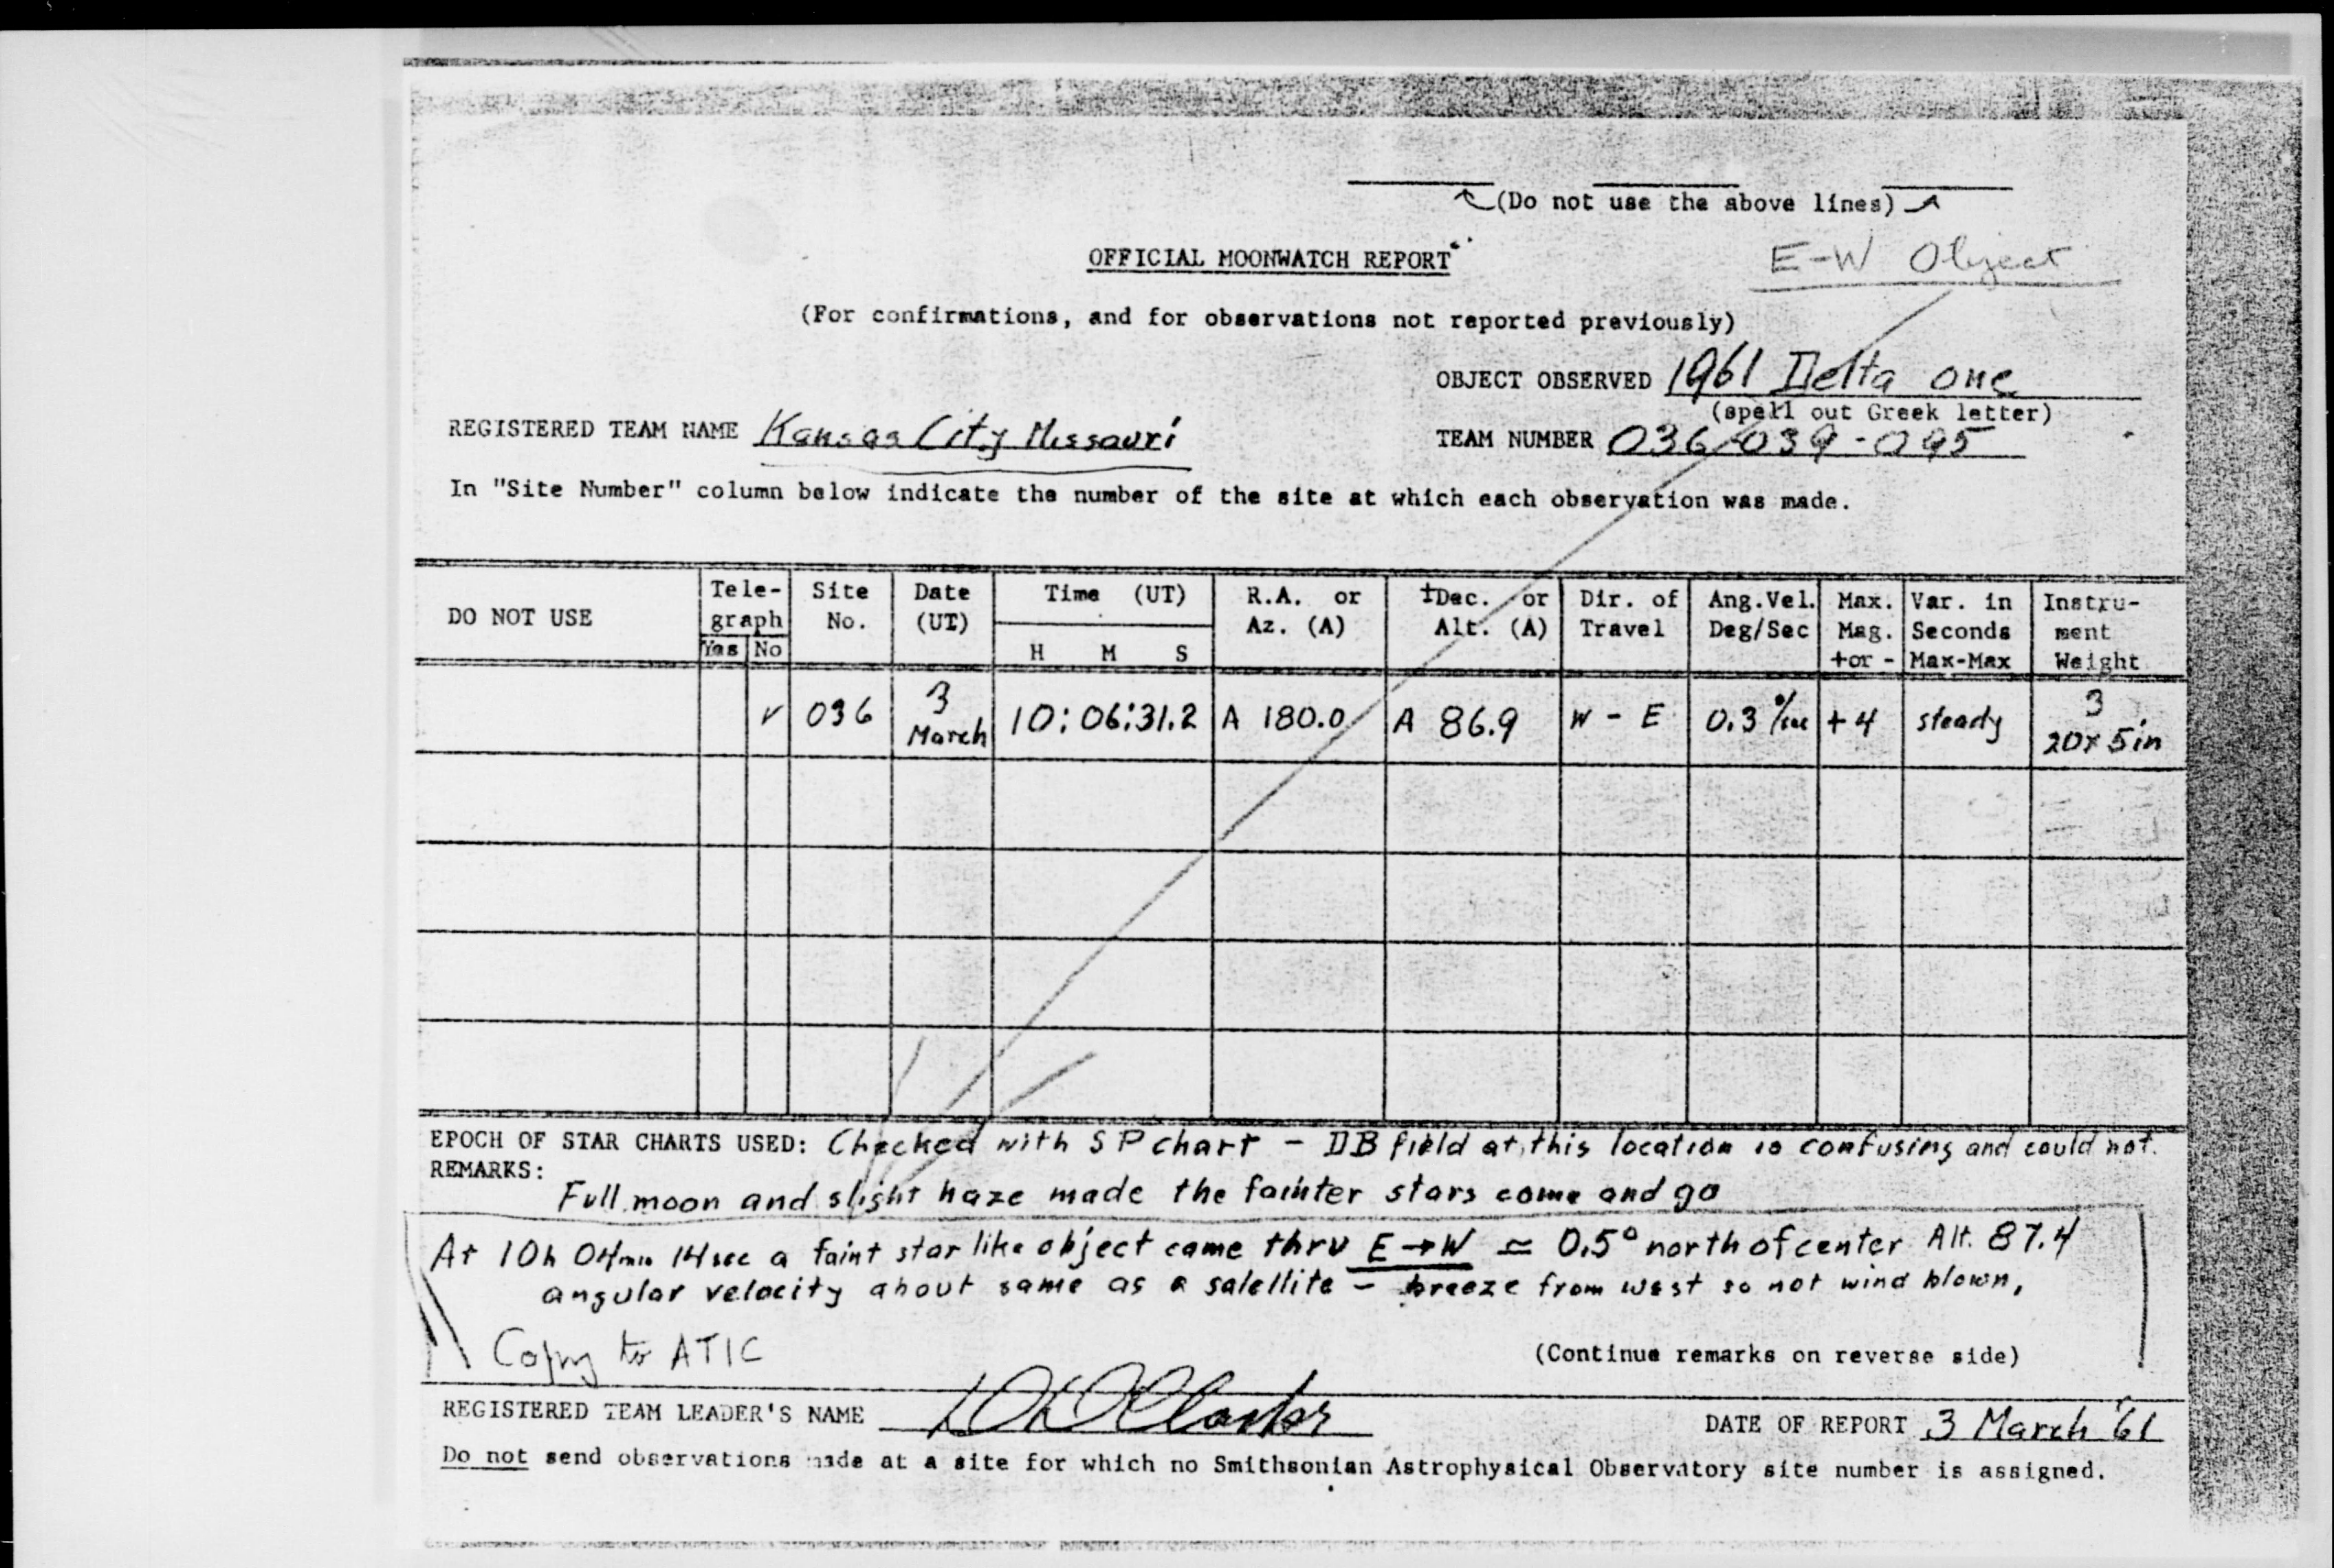 (Do not use the above lines)
OFFICIAL MOONWATCH REPORT
E-W Object
(For confirmations, and for observations not reported previously)
OBJECT OBSERVED 1961 Delta one
(spell out Greek letter)
REGISTERED TEAM NAME Kansas City Missouri
TEAM NUMBER 036-039-095
In "Site Number" column below indicate the number of the site at which each observation was made.
DO NOT USE
Tele-graph Yes No
Site No.
Date (UT)
Time (UT) H M S
R.A. or Az. (A)
±Dec. or Alt. (A)
Dir. of Travel
Ang.Vel. Deg/Sec
Max. Mag. +or -
Var. in Seconds Max-Max
Instru-ment Weight
✓ 036 3 March 10:06:31.2 A 180.0 A 86.9 W - E 0.3 °/sec +4 steady 3 20x5in
EPOCH OF STAR CHARTS USED: Checked with SP chart - DB field at this location is confusing and could not.
REMARKS:
Full moon and slight haze made the fainter stars come and go
At 10h 04min 14sec a faint star like object came thru E→W ≃ 0.5° north of center Alt. 87.4
angular velocity about same as a satellite - breeze from west so not wind blown,
Copy to ATIC
(Continue remarks on reverse side)
REGISTERED TEAM LEADER'S NAME
DATE OF REPORT 3 March '61
Do not send observations made at a site for which no Smithsonian Astrophysical Observatory site number is assigned.